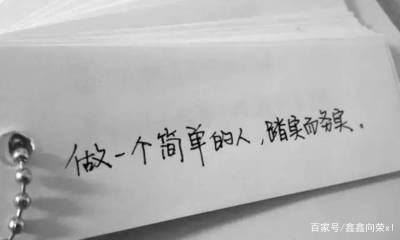 做一个简单的人，踏实而务实。
百家号/鑫鑫向荣xl